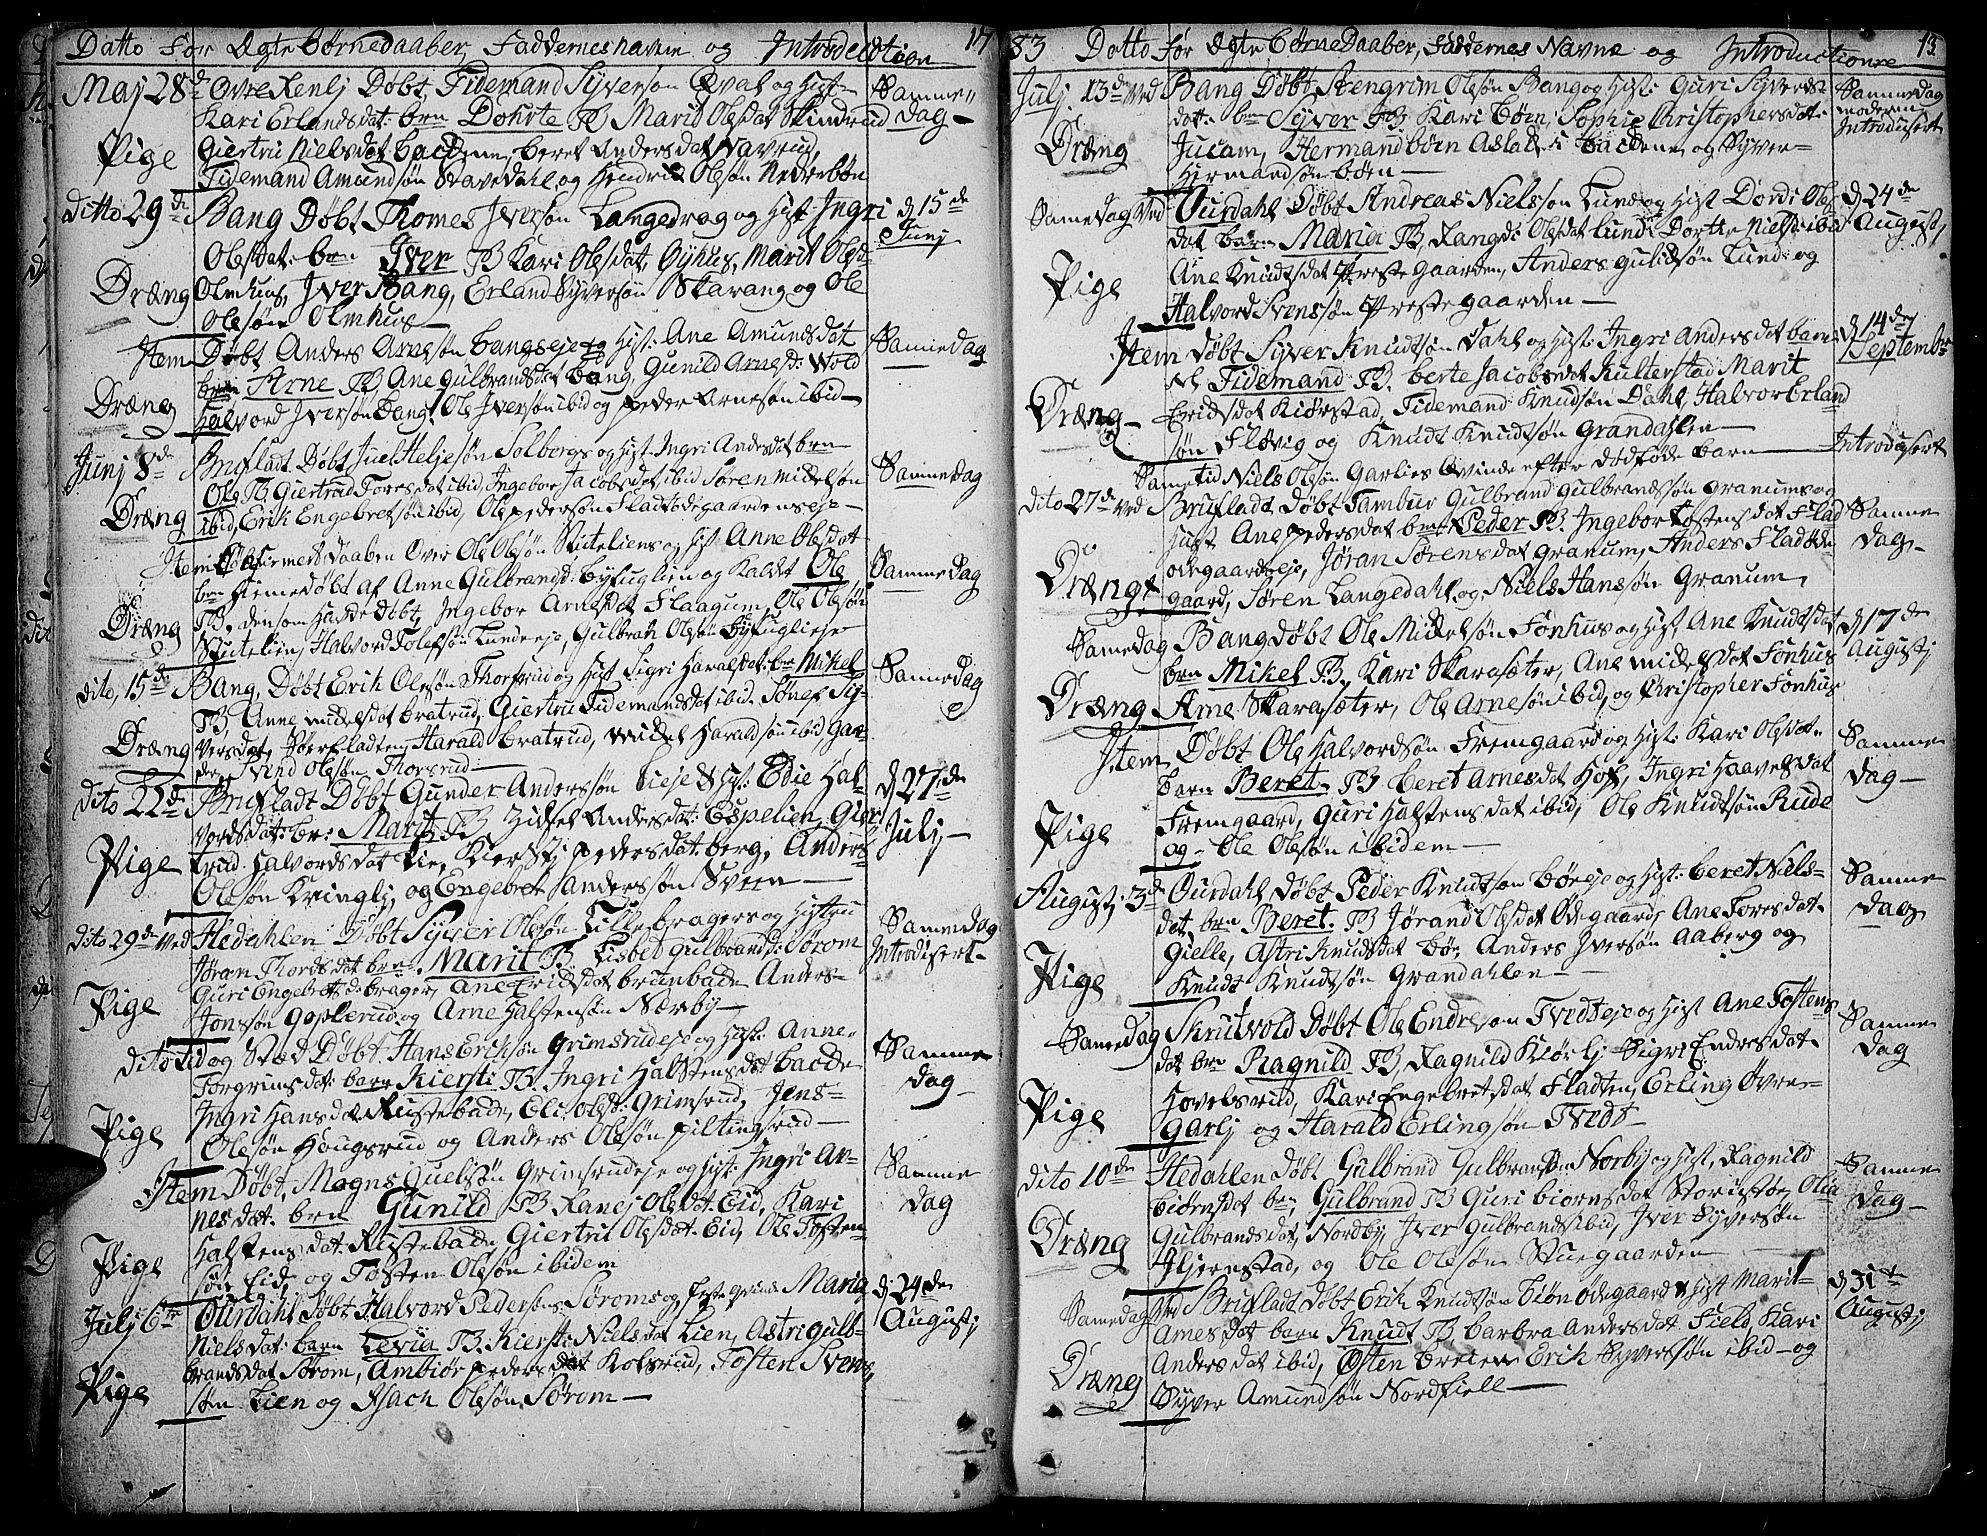 Datto for Ægte børnedaaber, Faddernes navne og Introduction
17
Maj 28de Øvre Renlj Døbt, Tidemand Syversøn Qval og Hust
Kari Erlandsdat: brn Dohrte TB Marit Olesdat Skindrud
Giertru Nielsdat bacdenn, beret Andersdat Navrud,
Tidemand Amundsøn Stavedahl og Hendrik Olesøn Nedrebøn
Samme
Dag
Pige
Ditto 29de Bang Døbt Thomes Iversøn Langedrag og Hust Ingri
Olesdat: brn Iver TB Kari Olesdat, Øyhus, Marit Olesd:
Olmhus, Iver Bang, Erland Syversøn Skavang og Ole
Olesøn Olmhus
d 15de
Junj
Dræng
Item Døbt Anders Arnesøn bangseje og Hust: Ane Amundsdat
brn Arne TB Ane Gulbrandsdat bang, Gunild Arnesd: Wold
Halvord Iversøn bang, Ole Iversøn ibid og Peder Arnesøn ibid
Samme dag
Dræng
Junj 8de Brufladt Døbt Juel Heljesøn Solbergs og Hust Ingri Andersdat brn
Ole TB Giertrud Toresdat ibid, Ingebor Jacobsdat ibid Søren Mickelsøn
ibid, Erik Engebretsøn ibid, Ole Pedersøn Fladtødegaardenseje
Samme dag
Dræng
Item Confirmert daaben over Ole Olesøn Skuteliens og Hust Anne Olesdat
brn Hiemedøbt af Anne Gulbrandsd: byfuglien og Kaldet Ole
TB, den som Hafde Døbt, Ingebor Arnesdat Flaagum, Ole Olesøn
Skutelien, Halvord Tolefsøn Lundeeje, Gulbran Olesøn byfuglieje
Samme dag
Dræng
dito, 15de Bang, Døbt Erik Olesøn Thorsrud og Hust Sigri Haraldsdat: brn Mikel
TB, Anne Mickelsdat bratrud, Giertru Tidemandsdat ibid. Sønef Sy-
versdat, Sørefladten, Harald bratrud, Mickel Haraldsøn ibid Gar-
der Svend Olesøn Thorsrud
Samme dag
Dræng
dito 22de Bruflade Døbt Gunder Andersøn Lieeje & Hust. Edie Hal-
vordsdat: br: Marit TB Zidsel Andersdat: Espelien, Gier
trud Halvordsdat Lie, Kierstj Pedersdat: berg, Anders
Olesøn Kringlj, og Engebret Andersøn Sveen
d 27de
Julj
Pige
dito 29de ved Hedahlen Døbt Syver Olesøn Lillebragers og Hustru
Jøran Thordsdat brn Marit TB Lisbet Gulbrandsd: Sørom
Guri Engebretsd: brager, Ane Erichsdat bruubade Anders
Jonsøn Goplerud og Arne Halstensøn Nørbÿ
Samme dag
Introdisert
Pige
dito tid og Sted Døbt. Hans Eriksøn Grimsrudeje og Hust: Anne
Torgrimsdat: barn Kiersti TB. Ingri Halstensdat bacde
Ingri Hansdat Rustebade, Eli Olesd: Grimsrud, Jens
Olesøn Hougsrud og Anders Olesøn Piltingsrud
Samme
Dag
Pige
Item Døbt, Magns Quelsøn Grimsrudeje og Hust: Ingri Ar-
nesdat: brn Gunild TB Ranej Olesdat: Eid, Kari
Halstensdat: Rustebade, Giertru Olesdat: Eid, Ole Tosten-
søn Eid, og Tosten Olesøn ibidem
Samme
dag
Pige
Julj 6te Ourdahl Døbt Halvord Pedersøn Søroms og Maria
Nielsdat: barn Levia TB. Kiersti Nielsdat Lien, Astri Gulb-
brandsdat Sørom, Ambiør Pedersdat Kolsrud, Tosten Svens
søn Lien og Isach Olesøn Sørom
d 24de
Augustj
Pige
83 Datto for Ægte børne Daaber, Faddernes Navne og Introductionne
13
Julj. 13de ved Bang Døbt, Stengrim Olesøn Bang og Hust: Guri Syvers-
dat: brn Syver TB Kari bøen, Sophie Christophersdat
Jucam, Hermand bøen Aslak i bacdene og Syver
Hermandsøn bøen
Samme dag
moderen
Introdusert
Dræng
Same Dag Ved Ourdahl Døbt Andreas Nielssøn Lund og Hust Dordi Ols
dat barn Maria TB. Rangdi Olesdat lund, Dortie Nielsd: ibid
Ane Knudtsdat Præstegaarden, Anders Gulicksøn Lund og
Halvord Svensøn Præstegaarden
d 24de
Augustj
Pige
Item Døbt Syver Knudtsøn Dahl og Hust: Ingri Andersdat barn
et Tidemand TB. berte Jacobsdat Kulterstad Marit
Erichsdat Kiørstad, Tidemand Knudsøn Dahl, Halvor Erland
søn Fløvig og Knudt Knudtsøn Grandahlen
d 14de
Septembr
Dræng
Same tid Niels Olesøn Garlies Qvinde efter dødføde barn
Introdusert
dito 27de ved Bruflade Døbt Tambur Gulbrand Gulbrandsøn Granums og
Hust Ane Pedersdat brn Peder TB. Ingebor Tostensdat Flad
ødegaardseje, Jøran Sørensdat Granum, Anders Fladøde
gaard, Søren Langedahl, og Niels Hansøn Granum
Samme
dag
Dræng
Same dag Bang Døbt Ole Mickelsøn Fonhus og Hust, Ane Knudtsdat
brn Mikel TB. Kari Skarasæter, Ane Mickelsdat Fonhus
Arne Skarasæter, Ole Arnesøn ibid, og Christopher Fonhus
d 17de
Augustj
Dræng
Item Døbt Ole Halvordsøn Fremgaard og Hust: Kari Olesdat
barn Beret TB beret Arnesdat Hof, Ingri Haavelsdat
Fremgaard, Guri Halstensdat ibid, Ole Knudtsøn Rude
og Ole Olesøn ibidem
Samme
dag
Pige
Augustj 3de Ourdahl Døbt Peder Knudtsøn Børeje og Hust: beret Niels-
dat brn Beret. TB Jørand Olesdat Ødegaard, Ane Toresdat
Gielle, Astri Knudtsdat bør, Anders Iversøn Aaberg og
Knudt Knudtsøn Grandahlen
Samme
dag
Pige
Same dag Skrutvold Døbt Ole Endresøn Tvedteje og Hust Ane Tostens
dat brn Ragnild TB, Ragnild Kiørlj Sigri Endresdat
Hovelsrud, Kari Engebretsdat Fladten, Erling Øvre-
Garlj og Harald Erlingsøn Tvedt
Samme
dag
Pige
dito 10de Hedahlen Døbt Gulbrand Gulbrandsøn Norbij og Hust, Ragnild
Biørnsdat bn, Gulbrand TB Guri biørnsdat Storistøn, Olia
Gulbrandsdat, Nordby, Iver Gulbrands ibid, Iver Syversøn
Hjernstad, og Ole Olesøn Stuegaarden
Samme
dag
Dræng
Same dag Ved Bruflade døbt Erik Knudtsøn biønødegaard & Hust Marit
Arnesdat barn Knudt TB barbra Andersdat Field, Kari
Andersdat ibid, Østen breien Erik Syversøn ibid og
Syver Amundsøn Nordfiell
d 31te
Augustj
Dræng